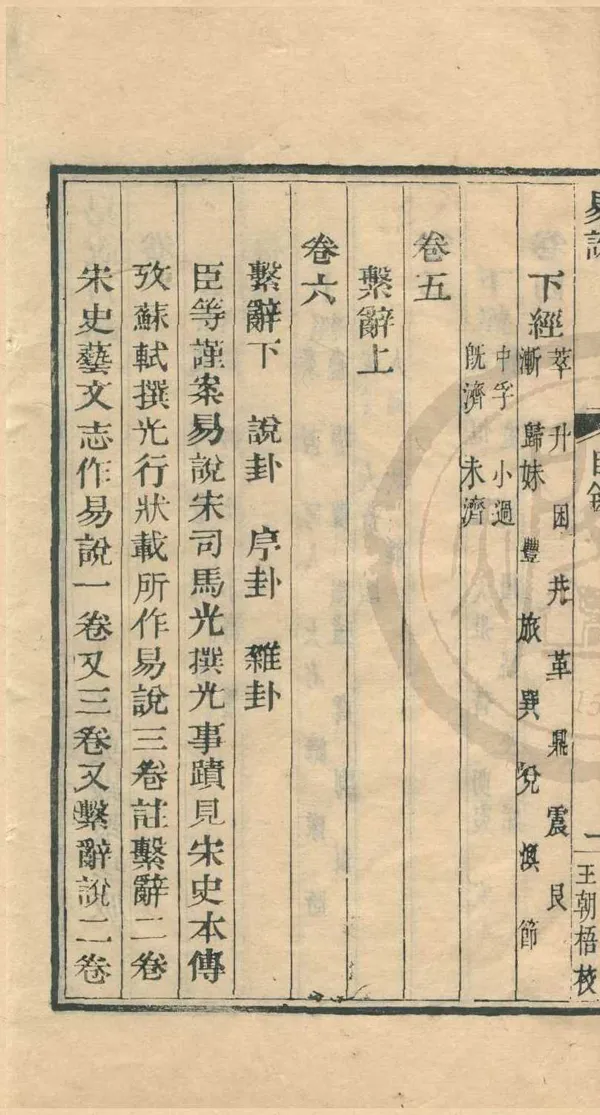 易說
目錄
一
王朝梧校
下經
萃 升 困 井 革 鼎 震 艮
漸 歸妹 豐 旅 巽 兌 渙 節
中孚 小過
旣濟 未濟
卷五
繫辭上
卷六
繫辭下 說卦 序卦 雜卦
臣等謹案易說宋司馬光撰光事蹟見宋史本傳
攷蘇軾撰光行狀載所作易說三卷註繫辭二卷
宋史藝文志作易說一卷又三卷又繫辭說二卷